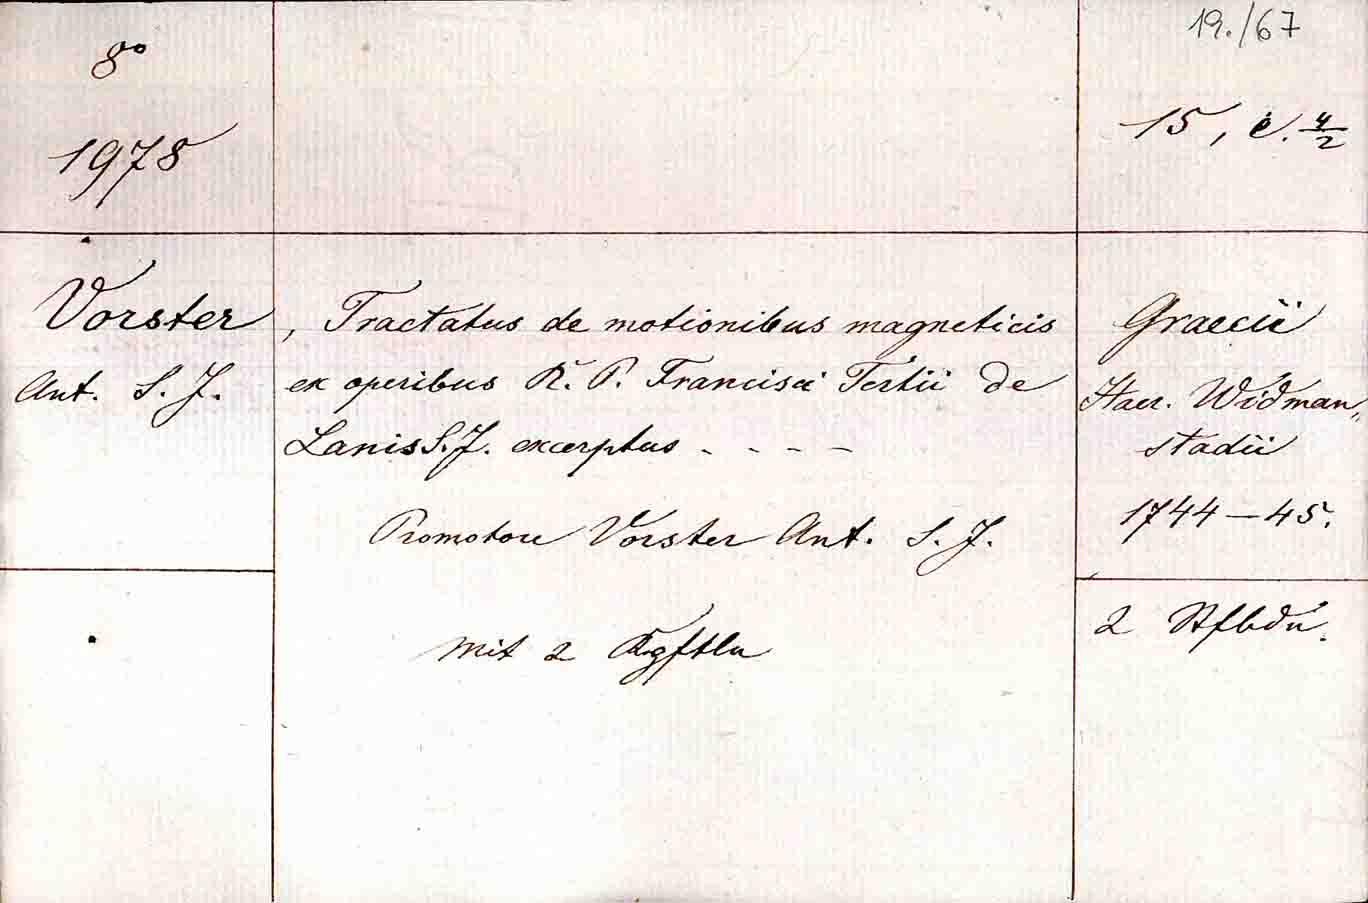 8°
1978
19./67
15, c. 4/2
Vorster
Ant. S. J.
, Tractatus de motionibus magneticis
ex operibus R. P. Francisci Tertii de
Lanis S. J. excerptus - - - -
Promotore Vorster Ant. S. J.
mit 2 Kgftln
Graecii
Haer. Widman-
stadii
1744-45.
2 Stfbdn.